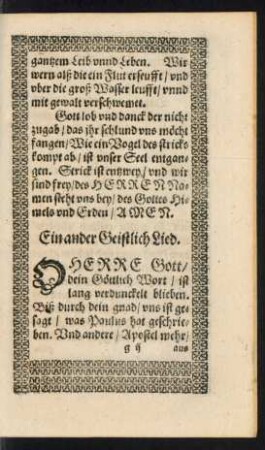 gantzem Leib vnnd Leben. Wir
wern alß die ein Flut erseufft / vnd
vber die groß Wasser leufft / vnnd
mit gewalt verschwemet.
Gott lob vnd danck der nicht
zugab / das jhr schlund vns möcht
fangen / Wie ein Vogel des stricks
kompt ab / ist vnser Seel entgan-
gen. Strick ist entzwey / vnd wir
sind frey / des HERREN Na-
men steht vns bey / des Gottes Hi-
mels vnd Erden / AMEN.
Ein ander Geistlich Lied.
O HERRE Gott /
dein Göttlich Wort / ist
lang verdunckelt blieben.
Biß durch dein gnad / vns ist ge-
sagt / was Paulus hat geschrie-
ben. Vnd andere / Apostel mehr /
g ij aus